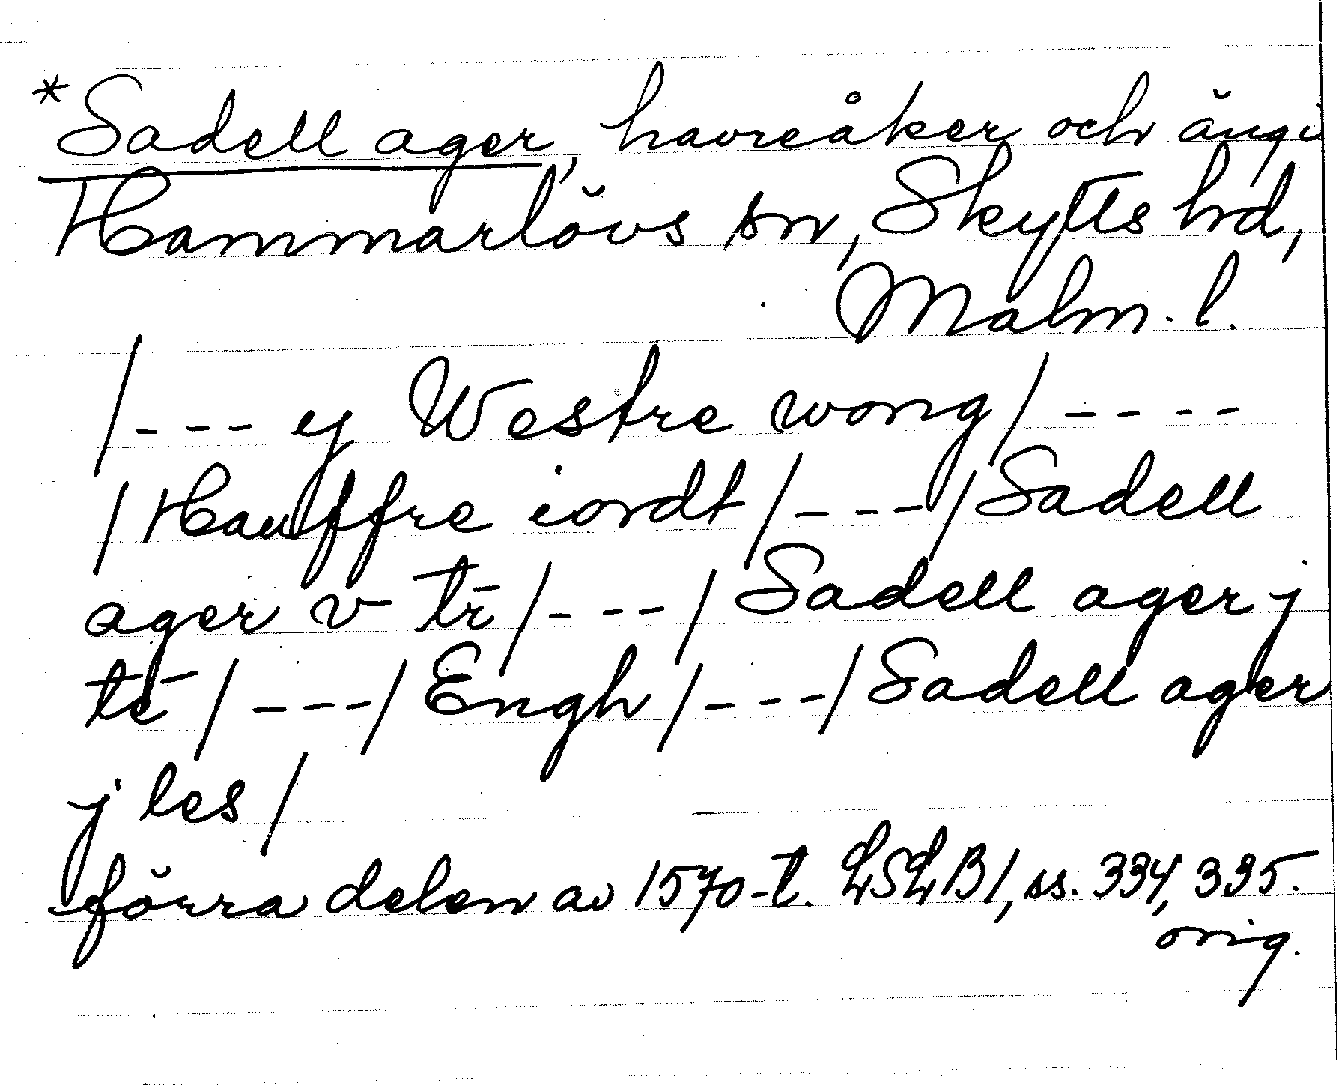 *Sadell ager, havreåker och äng i
Hammarlövs sn, Skytts hd,
Malm. l.
/--- ej Westre wong/----
/Hauffre iordt/---/Sadell
ager v tr̄/---/Sadell ager j
tē/---/Engh/---/Sadell ager
j les/
förra delen av 1570-t. LSLB1, ss. 334, 335.
orig.